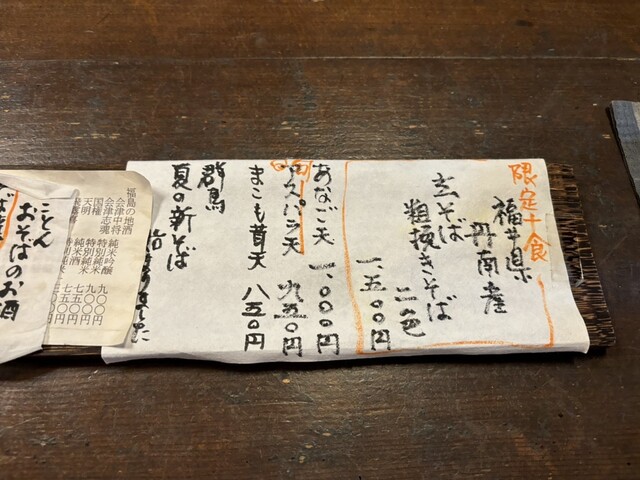 限定十食
福井県
丹南産
玄そば
粗挽きそば
二色
一、五〇〇円
あなご天 一、〇〇〇円
アスパラ天 九五〇円
まこも茸天 八五〇円
群馬
夏の新そば
福島の地酒
会津中将 純米吟醸 九〇〇円
会津志魂 特別純米 七五〇円
国権 特別純米 九〇〇円
天明 純米酒 七五〇円
ことん
おそばのお酒